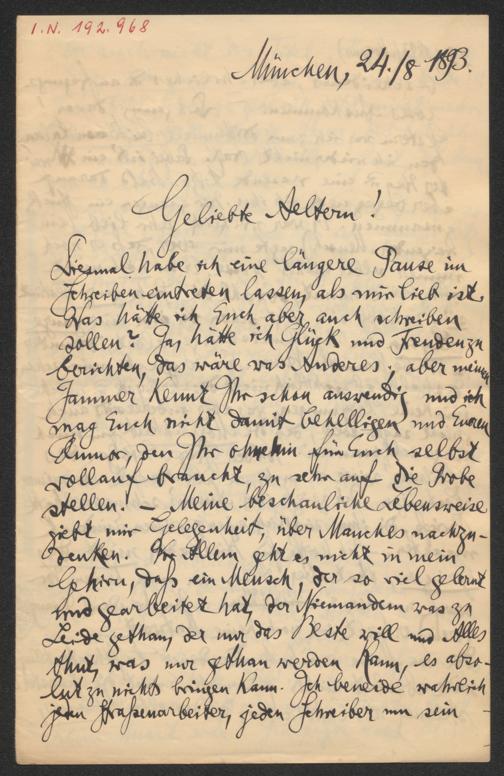 I.N. 192.968
München, 24./8 1893.
Geliebte Aeltern!
Diesmal habe ich eine längere Pause im
Schreiben eintreten lassen, als mir lieb ist.
Was hätte ich Euch aber auch schreiben
sollen? Ja, hätte ich Glück und Freuden zu
berichten, das wäre was Anderes; aber meinen
Jammer kennt Ihr schon auswendig und ich
mag Euch nicht damit behelligen und Euren
Humor, den Ihr ohnehin für Euch selbst
vollauf braucht, zu sehr auf die Probe
stellen. – Meine beschauliche Lebensweise
giebt mir Gelegenheit, über Manches nachzu-
denken. Vor Allem geht es nicht in mein
Gehirn, daß ein Mensch, der so viel gelernt
und gearbeitet hat, der Niemandem was zu
Leide gethan, der nur das Beste will und Alles
thut, was nur gethan werden kann, es abso-
lut zu nichts bringen kann. Ich beneide wahrlich
jeden Straßenarbeiter, jeden Schreiber um sein